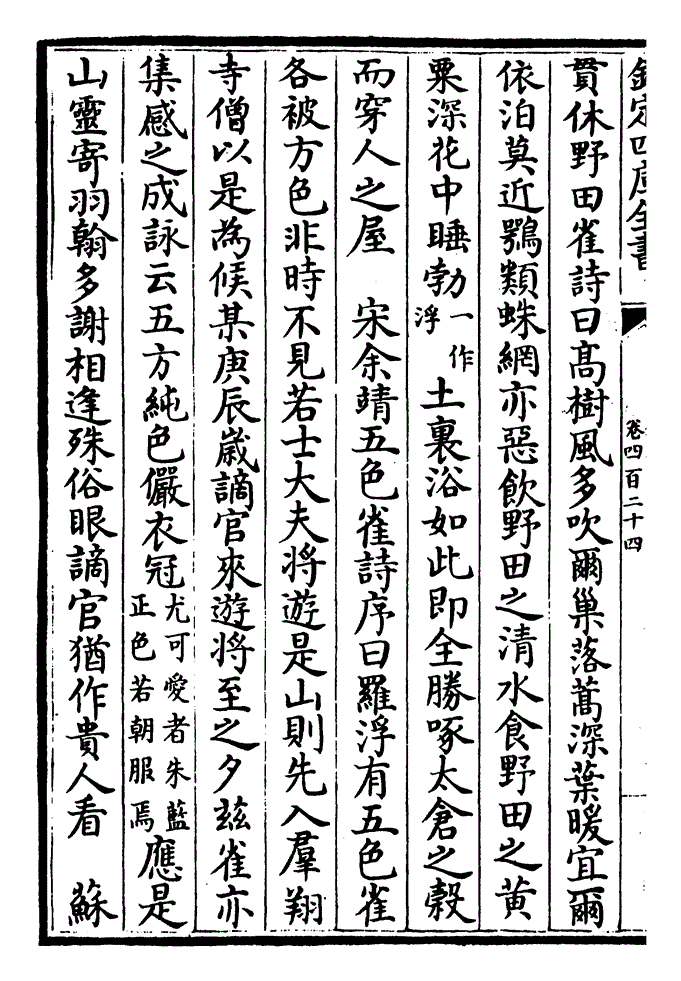 欽定四庫全書
卷四百二十四
貫休野田雀詩曰高樹風多吹爾巢落蒿深葉暖宜爾
依泊莫近鴞類蛛網亦惡飲野田之清水食野田之黄
粟深花中睡勃一作浮土裏浴如此即全勝啄太倉之穀
而穿人之屋　宋余靖五色雀詩序曰羅浮有五色雀
各被方色非時不見若士大夫將遊是山則先入羣翔
寺僧以是為候某庚辰歲謫官來遊將至之夕兹雀亦
集感之成詠云五方純色儼衣冠尤可愛者朱藍正色若朝服焉應是
山靈寄羽翰多謝相逢殊俗眼謫官猶作貴人看　蘇